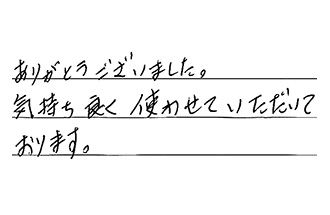 ありがとうございました。
気持ち良く使わせていただいて
おります。